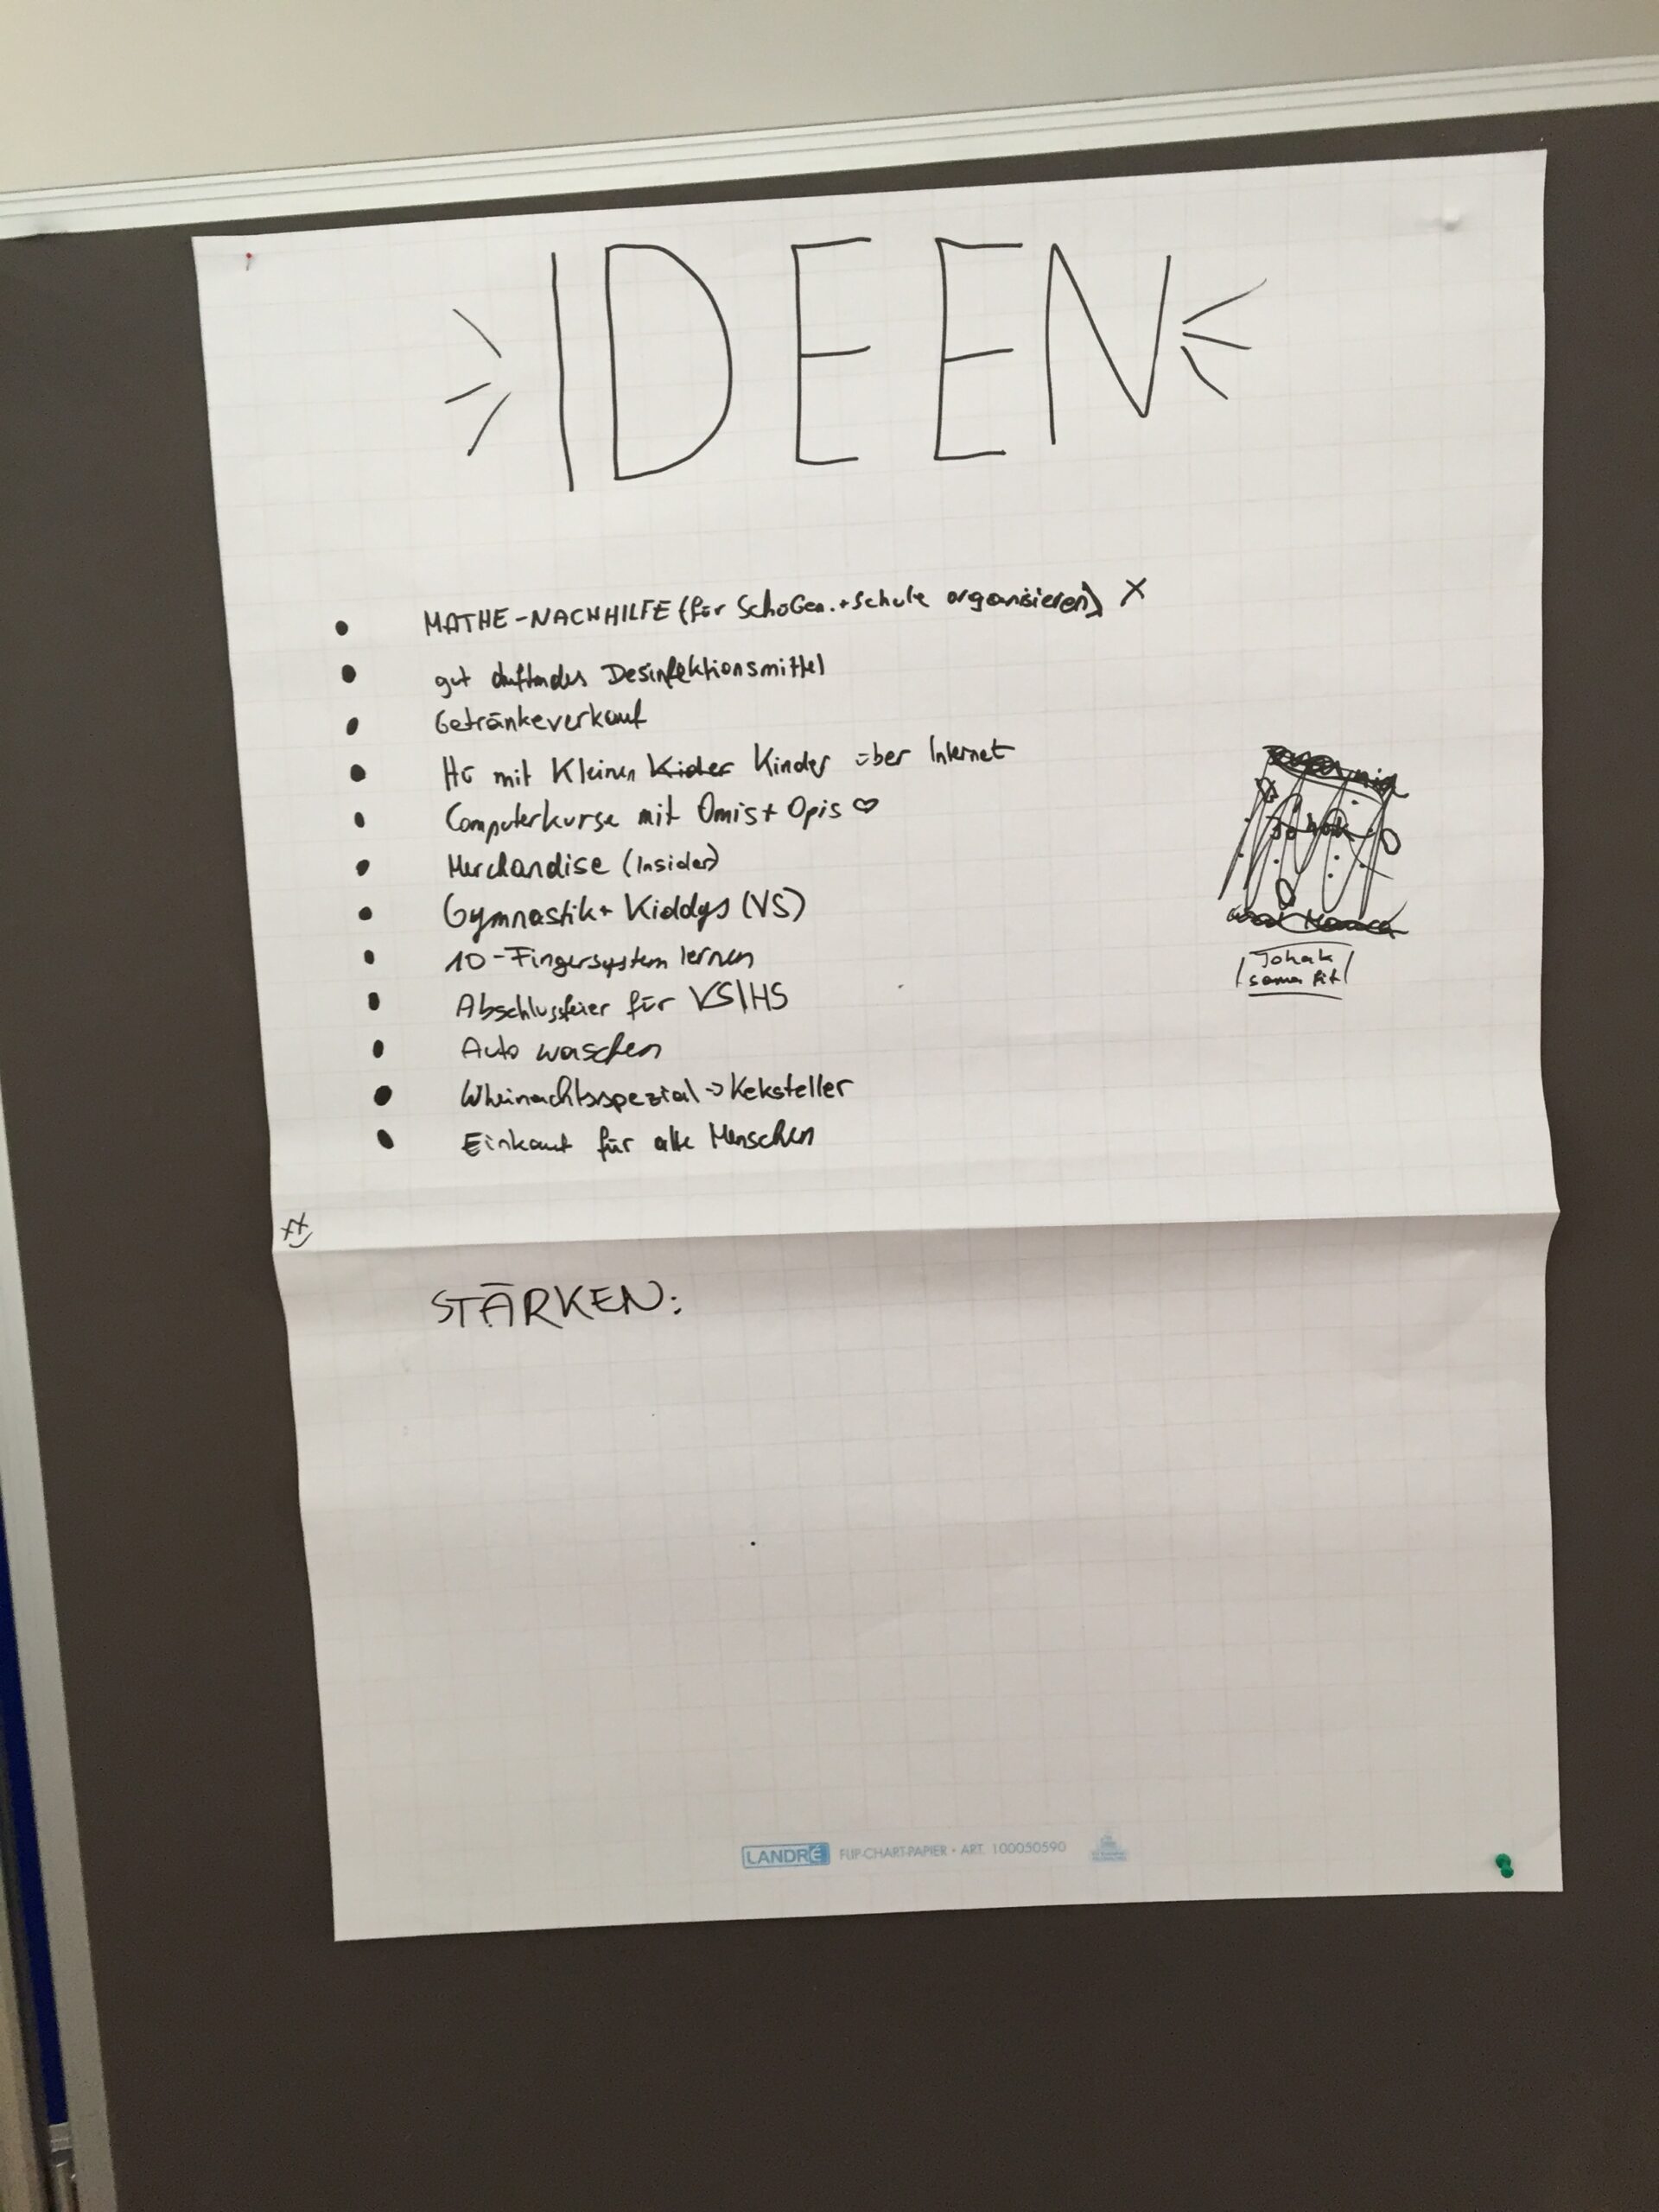 IDEEN
• MATHE-NACHHILFE (für SchöGen. + Schule organisieren) X
• gut duftendes Desinfektionsmittel
• Getränkeverkauf
• HÜ mit Kleinen Kider Kinder über Internet
• Computerkurse mit Omis + Opis ♡
• Merchandise (Insider)
• Gymnastik + Kiddys (VS)
• 10-Fingersystem lernen
• Abschlussfeier für VS/HS
• Auto waschen
• Wheinachtsspezial → Keksteller
• Einkauf für alte Menschen
Johak
Johak
sama fit
STÄRKEN:
LANDRÉ FLIP-CHART-PAPIER • ART. 100050590